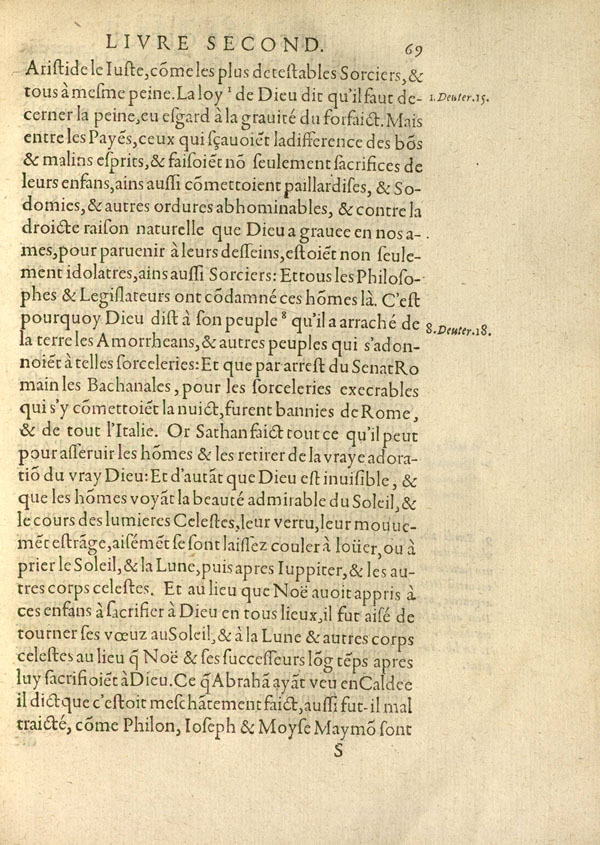 LIVRE SECOND. 69
Aristide le Iuste, cõme les plus detestables Sorciers, &
tous à mesme peine. La loy ¹ de Dieu dit qu'il faut de- 1. Deuter. 15.
cerner la peine, eu esgard à la grauité du forfaict. Mais
entre les Payẽs, ceux qui sçauoiẽt la difference des bõs
& malins esprits, & faisoiẽt nõ seulement sacrifices de
leurs enfans, ains aussi cõmettoient paillardises, & So-
domies, & autres ordures abhominables, & contre la
droicte raison naturelle que Dieu a grauee en nos a-
mes, pour paruenir à leurs desseins, estoiẽt non seule-
ment idolatres, ains aussi Sorciers: Et tous les Philoso-
phes & Legislateurs ont cõdamné ces hõmes là. C'est
pourquoy Dieu dist à son peuple ⁸ qu'il a arraché de 8. Deuter. 18.
la terre les Amorrheans, & autres peuples qui s'adon-
noiẽt à telles sorceleries: Et que par arrest du Senat Ro
main les Bachanales, pour les sorceleries execrables
qui s'y cõmettoiẽt la nuict, furent bannies de Rome,
& de tout l'Italie. Or Sathan faict tout ce qu'il peut
pour asseruir les hõmes & les retirer de la vraye adora-
tiõ du vray Dieu: Et d'autãt que Dieu est inuisible, &
que les hõmes voyãt la beauté admirable du Soleil, &
le cours des lumieres Celestes, leur vertu, leur mouue-
mẽt estrãge, aisémẽt se sont laissez couler à loüer, ou à
prier le Soleil, & la Lune, puis apres Iuppiter, & les au-
tres corps celestes. Et au lieu que Noë auoit appris à
ces enfans à sacrifier à Dieu en tous lieux, il fut aisé de
tourner ses vœuz au Soleil, & à la Lune & autres corps
celestes au lieu q̃ Noë & ses successeurs lõg tẽps apres
luy sacrifioiẽt à Dieu. Ce q̃ Abrahã ayãt veu en Caldee
il dict que c'estoit meschãtement faict, aussi fut-il mal
traicté, cõme Philon, Ioseph & Moyse Maymõ sont
S